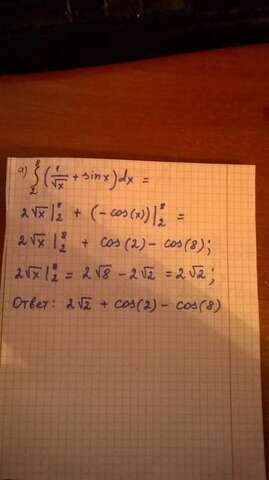 а) ∫₂⁸ (1/√x + sinx)dx =
2√x |₂⁸ + (-cos(x))|₂⁸ =
2√x |₂⁸ + cos(2) - cos(8);
2√x|₂⁸ = 2√8 - 2√2 = 2√2;
Ответ: 2√2 + cos(2) - cos(8)